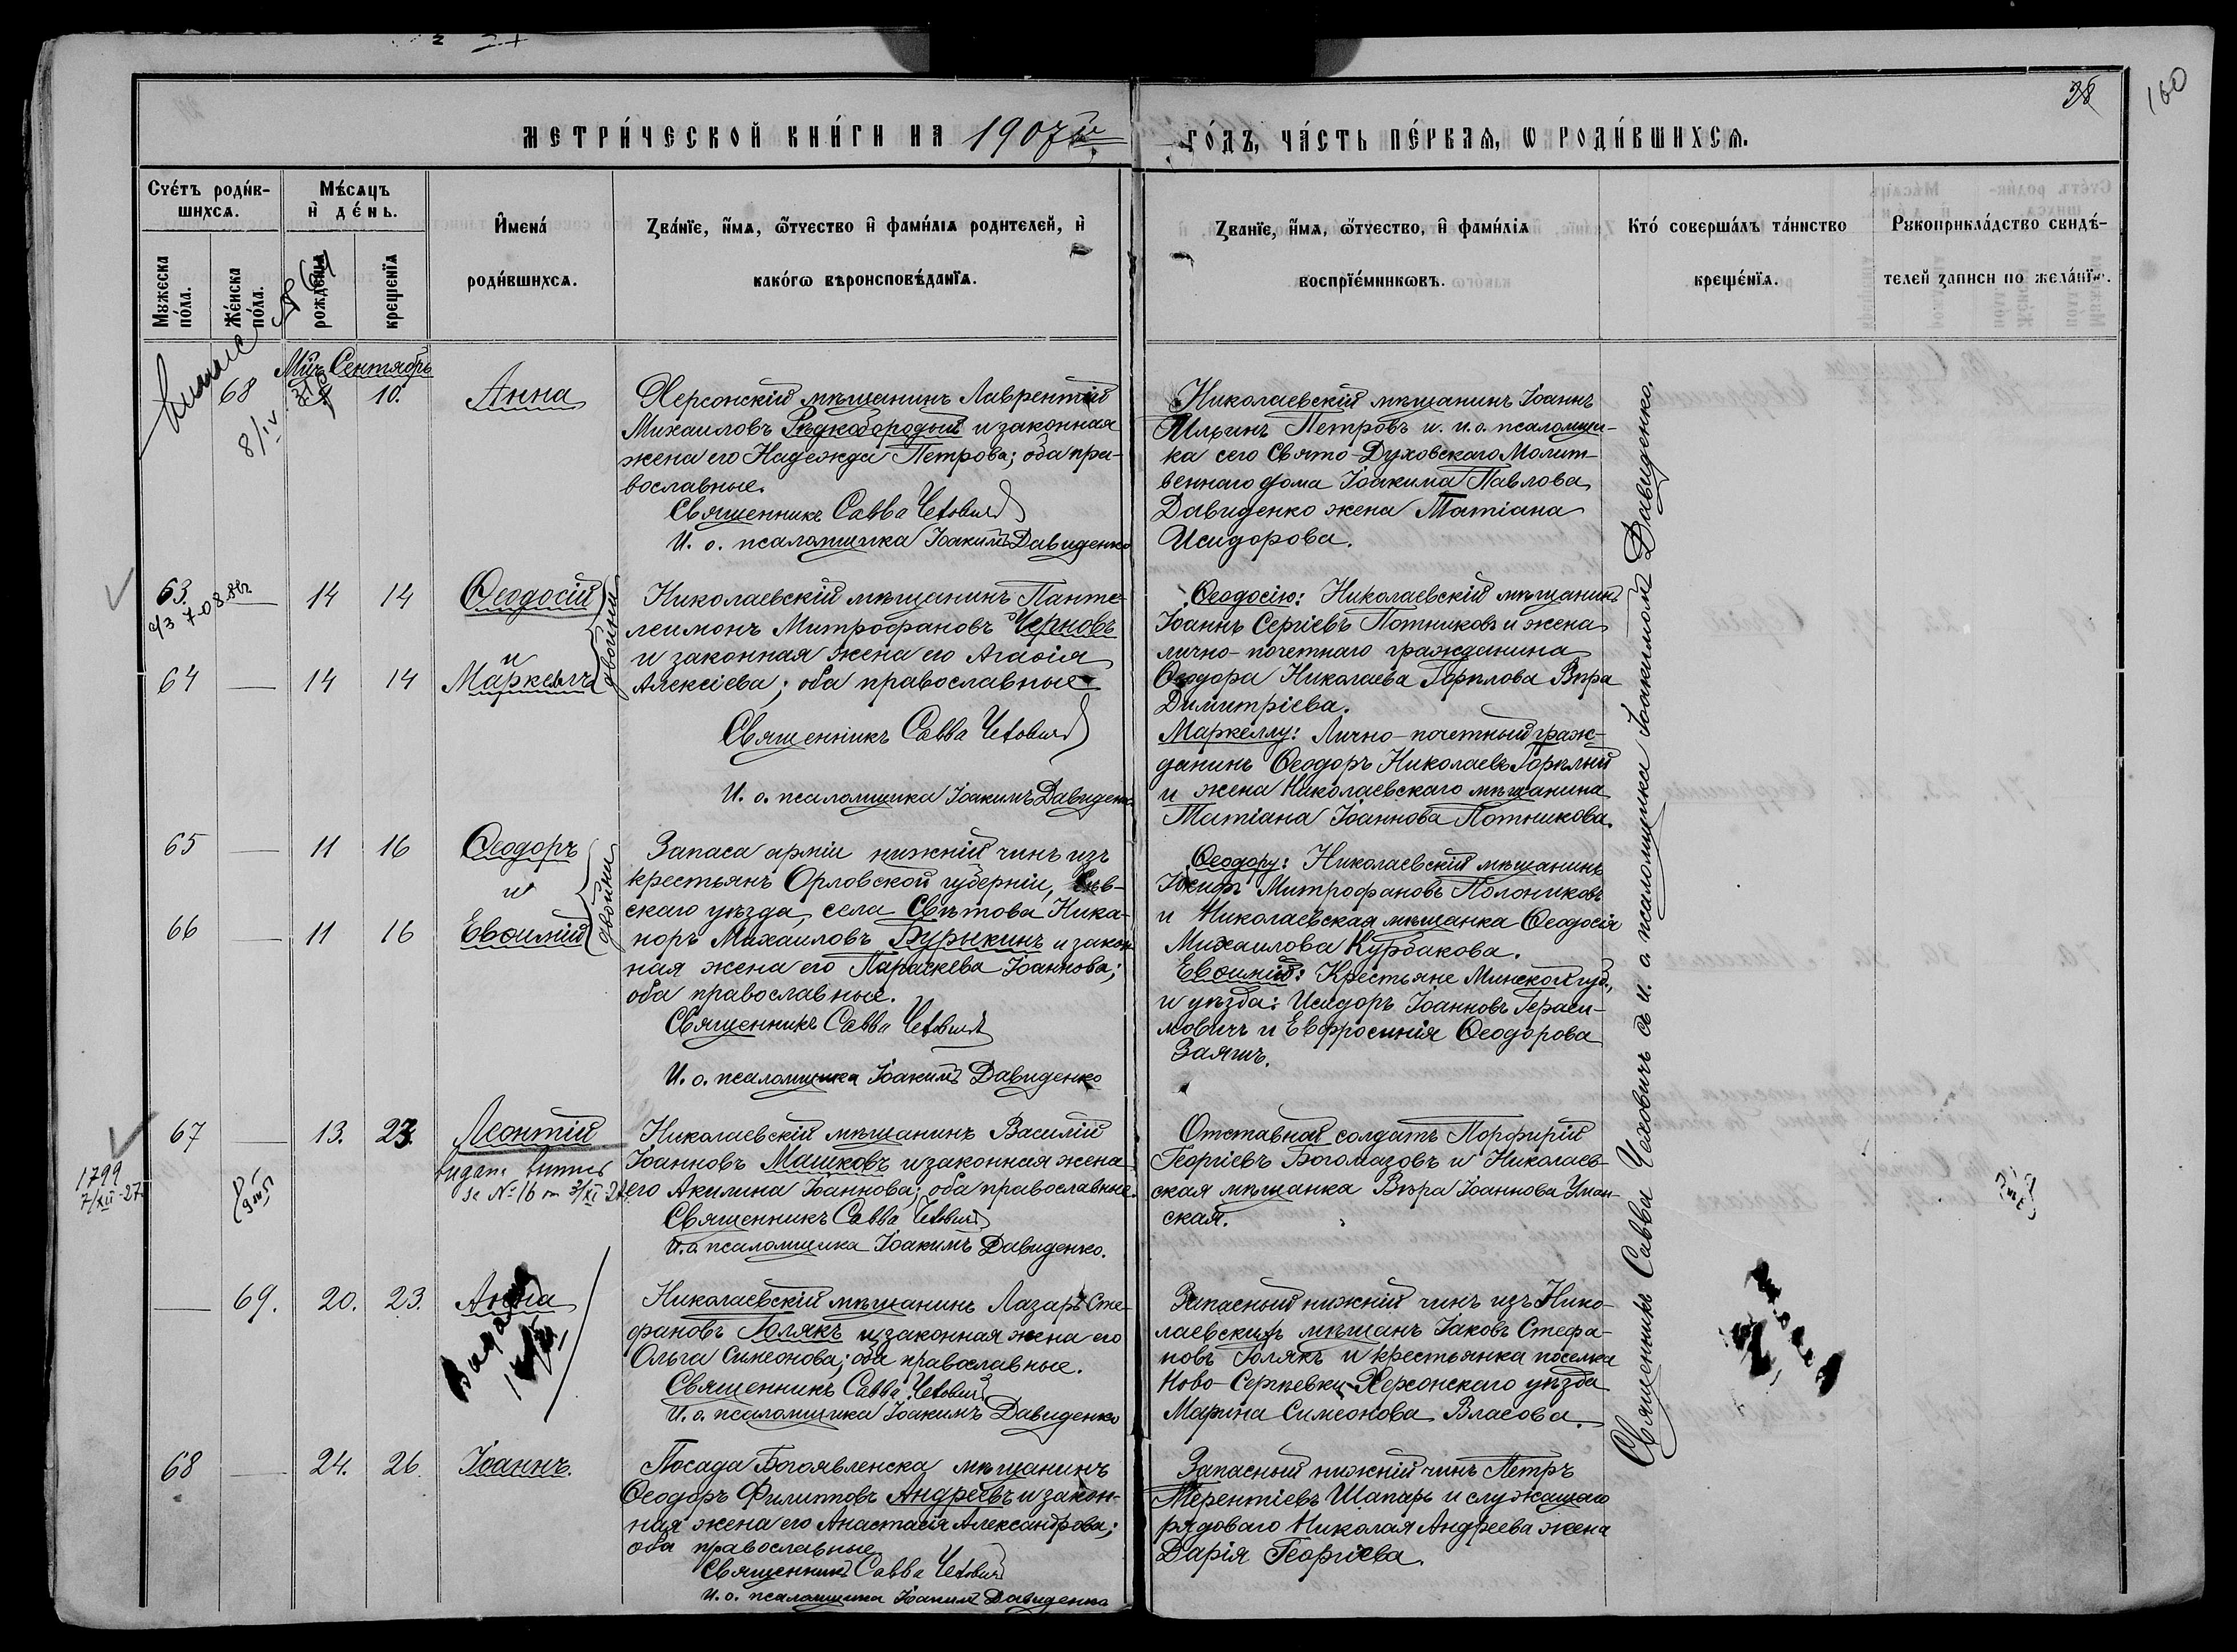 38
160
МЕТРИ́ЧЕСКОЙ КНИ́ГИ НА 1907й ГО́ДЪ, ЧА́СТЬ ПЕ́РВАѦ, Ѡ РОДИ́ВШИХСѦ.
Сче́тъ роди́в-
шихсѧ.
Мѣ́сѧцъ
и҆ де́нь.
И҆мена́
роди́вшихсѧ.
Зва́нїе, и҆́мѧ, ѻ҆́тчество и҆ фами́лїѧ родителей, и҆
како́гѡ вѣроисповѣ́данїѧ.
Зва́нїе, и҆́мѧ, ѻ҆́тчество, и҆ фами́лїѧ
воспрїе́мникѡвъ.
Кто́ соверша́лъ та́инство
креще́нїѧ.
Рꙋкоприкла́дство свидѣ́-
телей записи по жела́нїю.
Мꙋжеска
по́ла.
Же́нска
по́ла.
рожденїѧ
крещенїѧ
Мцъ Сентябрь
68
10.
Анна
Херсонскій мѣщанинъ Лаврентій
Михаиловъ Рѣдкобородый и законная
жена его Надежда Петрова; оба пра-
вославные.
Священникъ Савва Чехович
И. о. псаломщика Іоакимъ Давиденко
Николаевскій мѣщанинъ Іоаннъ
Ильинъ Петровъ и и. о. псаломщи-
ка сего Свято-Духовскаго Молит-
веннаго дома Іоакима Павлова
Давиденко жена Татіана
Исидорова.
63
—
14
14
Ѳеодосій
и
64
—
14
14
Маркеллъ
двойни
Николаевскій мѣщанинъ Панте-
леимонъ Митрофановъ Черновъ
и законная жена его Агаѳія
Алексіева; оба православные
Священникъ Савва Чехович
И. о. псаломщика Іоакимъ Давиденко
Ѳеодосію: Николаевскій мѣщанинъ
Іоаннъ Сергіевъ Потниковъ и жена
лично-почетнаго гражданина
Ѳеодора Николаева Горѣлова Вѣра
Димитріева.
Маркеллу: Лично-почетный граж-
данинъ Ѳеодоръ Николаевъ Горѣлый
и жена Николаевскаго мѣщанина
Татіана Іоаннова Потникова.
65
—
11
16
Ѳеодоръ
и
66
—
11
16
Евѳимій
двойни
Запаса арміи нижній чинъ изъ
крестьянъ Орловской губерніи, Сѣв-
скаго уѣзда, села Свѣтова Ника-
норъ Михаиловъ Бурыкинъ и закон
ная жена его Параскева Іоаннова;
оба православные.
Священникъ Савва Чехович
И. о. псаломщика Іоакимъ Давиденко
Ѳеодору: Николаевскій мѣщанинъ
Іосифъ Митрофановъ Полониковъ
и Николаевская мѣщанка Ѳеодосія
Михаилова Курбакова.
Евѳимій: Крестьяне Минской губ.,
и уѣзда: Исидоръ Іоанновъ Гераси-
мовичъ и Евфросинія Ѳеодорова
Заяшъ.
67
—
13.
23.
Леонтій
1799
7/XII-27
Николаевскій мѣщанинъ Василій
Іоанновъ Машковъ и законная жена
его Акилина Іоаннова; оба православные.
Священникъ Савва Чехович
И. о. псаломщика Іоакимъ Давиденко.
Отставной солдатъ Порфирій
Георгіевъ Богомазовъ и Николаев-
ская мѣщанка Вѣра Іоаннова Уман-
ская.
—
69.
20.
23.
Анна
Николаевскій мѣщанинъ Лазарь Сте-
фановъ Голякъ и законная жена его
Ольга Симеонова; оба православные.
Священникъ Савва Чехович
И. о. псаломщика Іоакимъ Давиденко
Запасный нижній чинъ изъ Нико-
лаевскихъ мѣщанъ Іаковъ Стефа-
новъ Голякъ и крестьянка поселка
Ново-Сергѣевки, Херсонскаго уѣзда
Марина Симеонова Власова.
68
—
24.
26
Іоаннъ.
Посада Богоявленска мѣщанинъ
Ѳеодоръ Филипповъ Андреевъ и закон-
ная жена его Анастасія Александрова;
оба православные
Священникъ Савва Чехович
И. о. псаломщика Іоакимъ Давиденко
Запасный нижній чинъ Петръ
Терентіевъ Шапарь и служащаго
рядоваго Николая Андреева жена
Дарія Георгіева.
Священникъ Савва Чеховичъ съ и. о. псаломщика Іоакимомъ Давиденко.